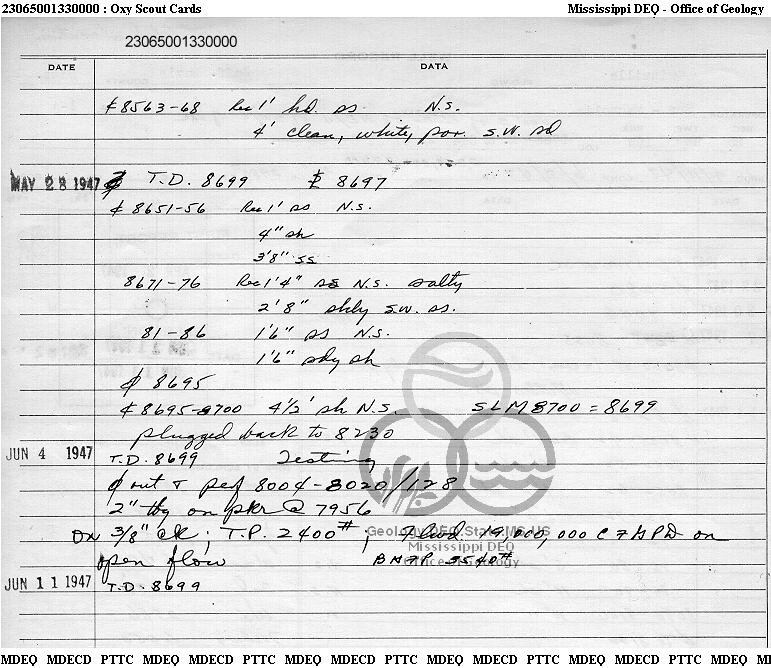 23065001330000 : Oxy Scout Cards Mississippi DEQ - Office of Geology
23065001330000
DATE DATA
¢ 8563-68 Rec 1' hd. ss. N.S.
4' clean, white, por. s.w. sd
MAY 28 1947 T.D. 8699 8697
¢ 8651-56 Rec 1' ss N.S.
4" sh
3'8" ss
8671-76 Rec 1'4" ss N.S. salty
2'8" shly s.w. ss.
81-86 1'6" ss N.S.
1'6" sdy sh
8695
¢ 8695-8700 4 1/2' sh N.S. SLM 8700 = 8699
plugged back to 8230
JUN 4 1947 T.D. 8699 Testing
out & perf 8004-8020/128
2" tbg on pkr @ 7956
On 3/8" ck; T.P. 2400#; Flwd. 19,000,000 CFGPD on
open flow BHFP 3540#
JUN 11 1947 T.D. 8699
Geology.DEQ.State.MS.US
Mississippi DEQ
Office of Geology
MDEQ MDECD PTTC MDEQ MDECD PTTC MDEQ MDECD PTTC MDEQ MDECD PTTC MDEQ MDECD PTTC MDEQ MDECD PTTC MDEQ